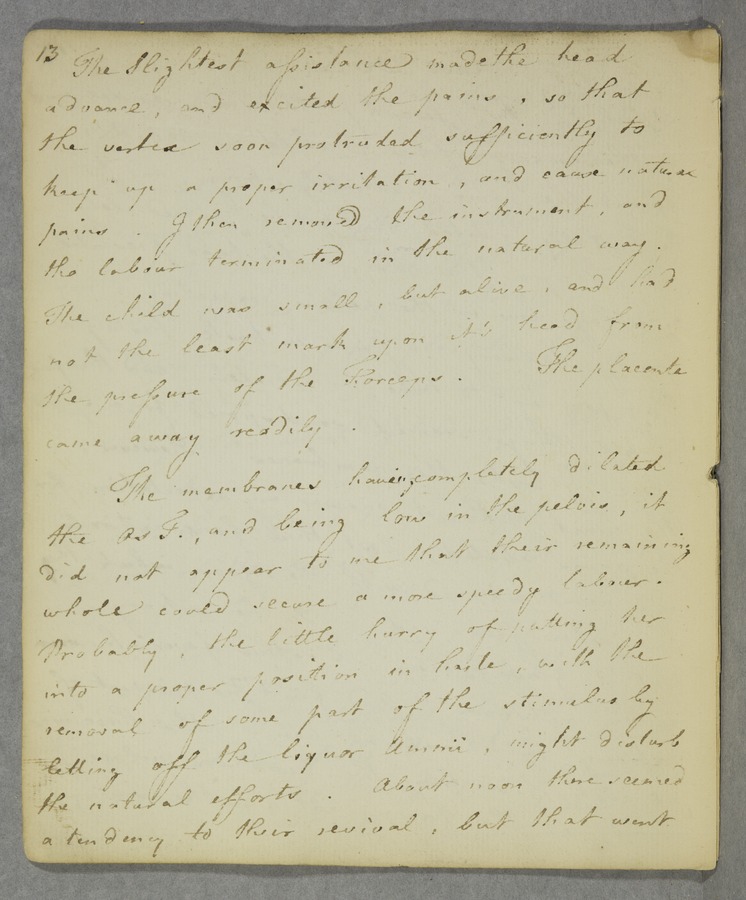 13 The slightest assistance made the head
advance, and excited the pains, so that
the vertex soon protruded sufficiently to
keep up a proper irritation, and cause nature
pains. I then removed the instrument, and
the labour terminated in the natural way.
The child was small, but alive, and had
not the least mark upon it's head from
the pressure of the Forceps. The placenta
came away readily.
The membranes having completely dilated
the Os T., and being low in the pelvis, it
did not appear to me that their remaining
whole could secure a more speedy labour.
Probably, the little hurry of putting her
into a proper position in haste, with the
removal of some part of the stimulus by
letting off the liquor Amnii, might disturb
the natural efforts. About noon there seemed
a tendency to their revival, but that went